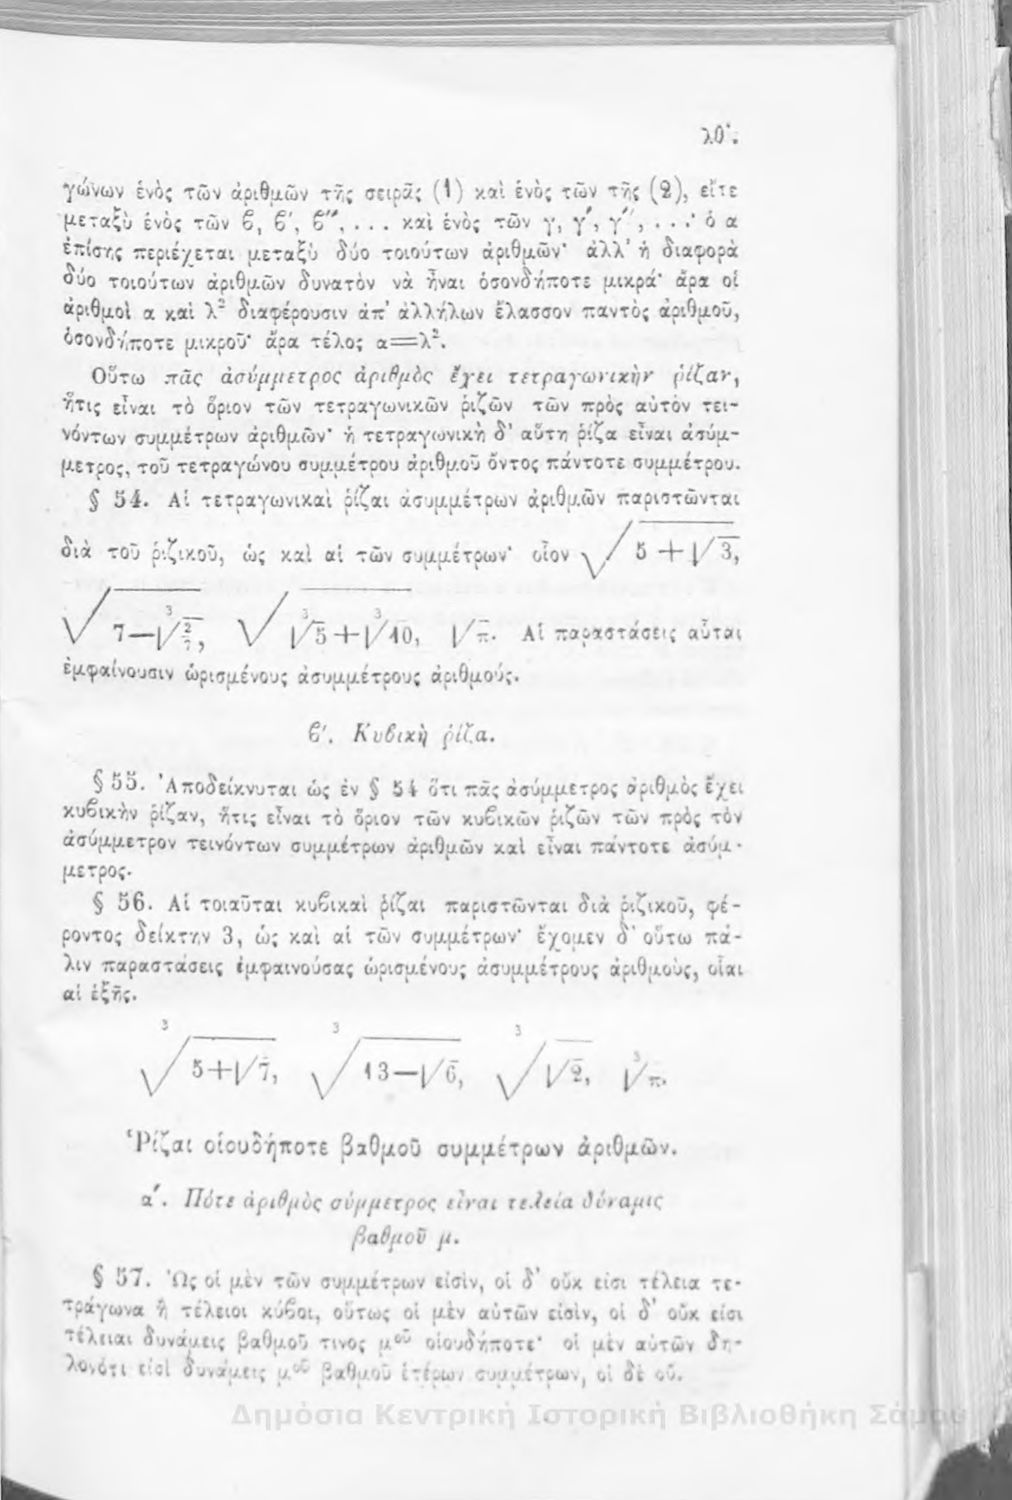 λθ΄.
γώνων ἑνὸς τῶν ἀριθμῶν τῆς σειρᾶς (1) καὶ ἑνὸς τῶν τῆς (2), εἴτε
μεταξὺ ἑνὸς τῶν β, β΄, β΄΄, . . . καὶ ἑνὸς τῶν γ, γ΄, γ΄΄, . . .· ὁ α
ἐπίσης περιέχεται μεταξὺ δύο τοιούτων ἀριθμῶν· ἀλλ᾽ ἡ διαφορὰ
δύο τοιούτων ἀριθμῶν δυνατὸν νὰ ἦναι ὁσονδήποτε μικρά· ἄρα οἱ
ἀριθμοὶ α καὶ λ² διαφέρουσιν ἀπ᾽ ἀλλήλων ἔλασσον παντὸς ἀριθμοῦ,
ὁσονδήποτε μικροῦ· ἄρα τέλος α=λ².
Οὕτω πᾶς ἀσύμμετρος ἀριθμὸς ἔχει τετραγωνικὴν ῥίζαν,
ἥτις εἶναι τὸ ὅριον τῶν τετραγωνικῶν ῥιζῶν τῶν πρὸς αὐτὸν τει-
νόντων συμμέτρων ἀριθμῶν· ἡ τετραγωνικὴ δ᾽ αὕτη ῥίζα εἶναι ἀσύμ-
μετρος, τοῦ τετραγώνου συμμέτρου ἀριθμοῦ ὄντος πάντοτε συμμέτρου.
§ 54. Αἱ τετραγωνικαὶ ῥίζαι ἀσυμμέτρων ἀριθμῶν παριστῶνται
διὰ τοῦ ῥιζικοῦ, ὡς καὶ αἱ τῶν συμμέτρων· οἷον √(5+√3),
√(7—∛(2/7)), √(∛5+∛10), √π. Αἱ παραστάσεις αὗται
ἐμφαίνουσιν ὡρισμένους ἀσυμμέτρους ἀριθμούς.
β΄. Κυβικὴ ῥίζα.
§ 55. Ἀποδείκνυται ὡς ἐν § 54 ὅτι πᾶς ἀσύμμετρος ἀριθμὸς ἔχει
κυβικὴν ῥίζαν, ἥτις εἶναι τὸ ὅριον τῶν κυβικῶν ῥιζῶν τῶν πρὸς τὸν
ἀσύμμετρον τεινόντων συμμέτρων ἀριθμῶν καὶ εἶναι πάντοτε ἀσύμ-
μετρος.
§ 56. Αἱ τοιαῦται κυβικαὶ ῥίζαι παριστῶνται διὰ ῥιζικοῦ, φέ-
ροντος δείκτην 3, ὡς καὶ αἱ τῶν συμμέτρων· ἔχομεν δ᾽ οὕτω πά-
λιν παραστάσεις ἐμφαινούσας ὡρισμένους ἀσυμμέτρους ἀριθμοὺς, οἷαι
αἱ ἑξῆς.
∛(5+√7), ∛(13—√6), ∛(√2), ∛π.
Ῥίζαι οἱουδήποτε βαθμοῦ συμμέτρων ἀριθμῶν.
α΄. Πότε ἀριθμὸς σύμμετρος εἶναι τελεία δύναμις
βαθμοῦ μ.
§ 57. Ὡς οἱ μὲν τῶν συμμέτρων εἰσὶν, οἱ δ᾽ οὐκ εἰσι τέλεια τε-
τράγωνα ἢ τέλειοι κύβοι, οὕτως οἱ μὲν αὐτῶν εἰσὶν, οἱ δ᾽ οὐκ εἰσι
τέλειαι δυνάμεις βαθμοῦ τινος μοῦ οἱουδήποτε· οἱ μὲν αὐτῶν δη-
λονότι εἰσὶ δυνάμεις μοῦ βαθμοῦ ἑτέρων συμμέτρων, οἱ δὲ οὔ.
Δημόσια Κεντρική Ιστορική Βιβλιοθήκη Σάμου